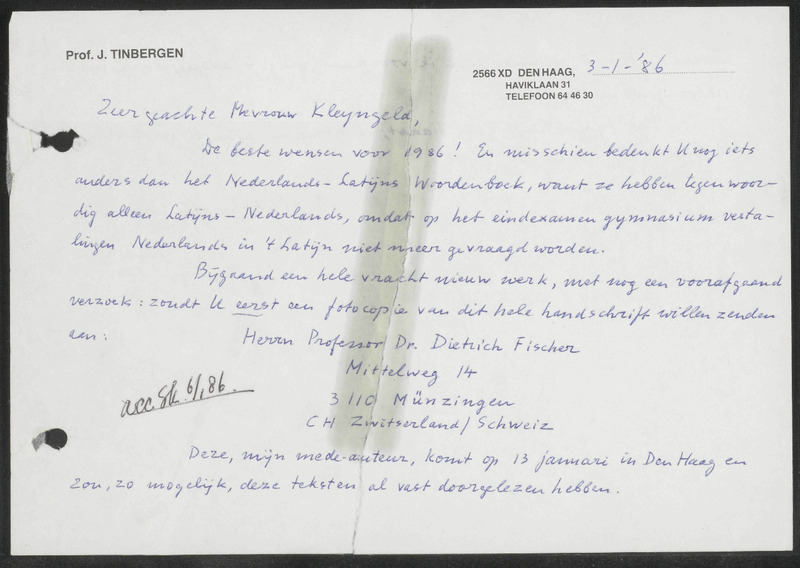 Prof. J. TINBERGEN
2566 XD DEN HAAG, 3-1-'86
HAVIKLAAN 31
TELEFOON 64 46 30
Zeer geachte Mevrouw Kleyngeld,
De beste wensen voor 1986! En misschien bedenkt U nog iets
anders dan het Nederlands-Latijns Woordenboek, want ze hebben tegenwoor-
dig alleen Latijns-Nederlands, omdat op het eindexamen gymnasium verta-
lingen Nederlands in 't Latijn niet meer gevraagd worden.
Bijgaand een hele vracht nieuw werk, met nog een voorafgaand
verzoek: zoudt U eerst een fotocopie van dit hele handschrift willen zenden
aan: Herrn Professor Dr. Dietrich Fischer
Mittelweg 14
3110 Münzingen
CH Zwitserland/Schweiz
acc. 6/1, 86.
Deze, mijn mede-auteur, komt op 13 januari in Den Haag en
zou, zo mogelijk, deze teksten al vast doorgelezen hebben.